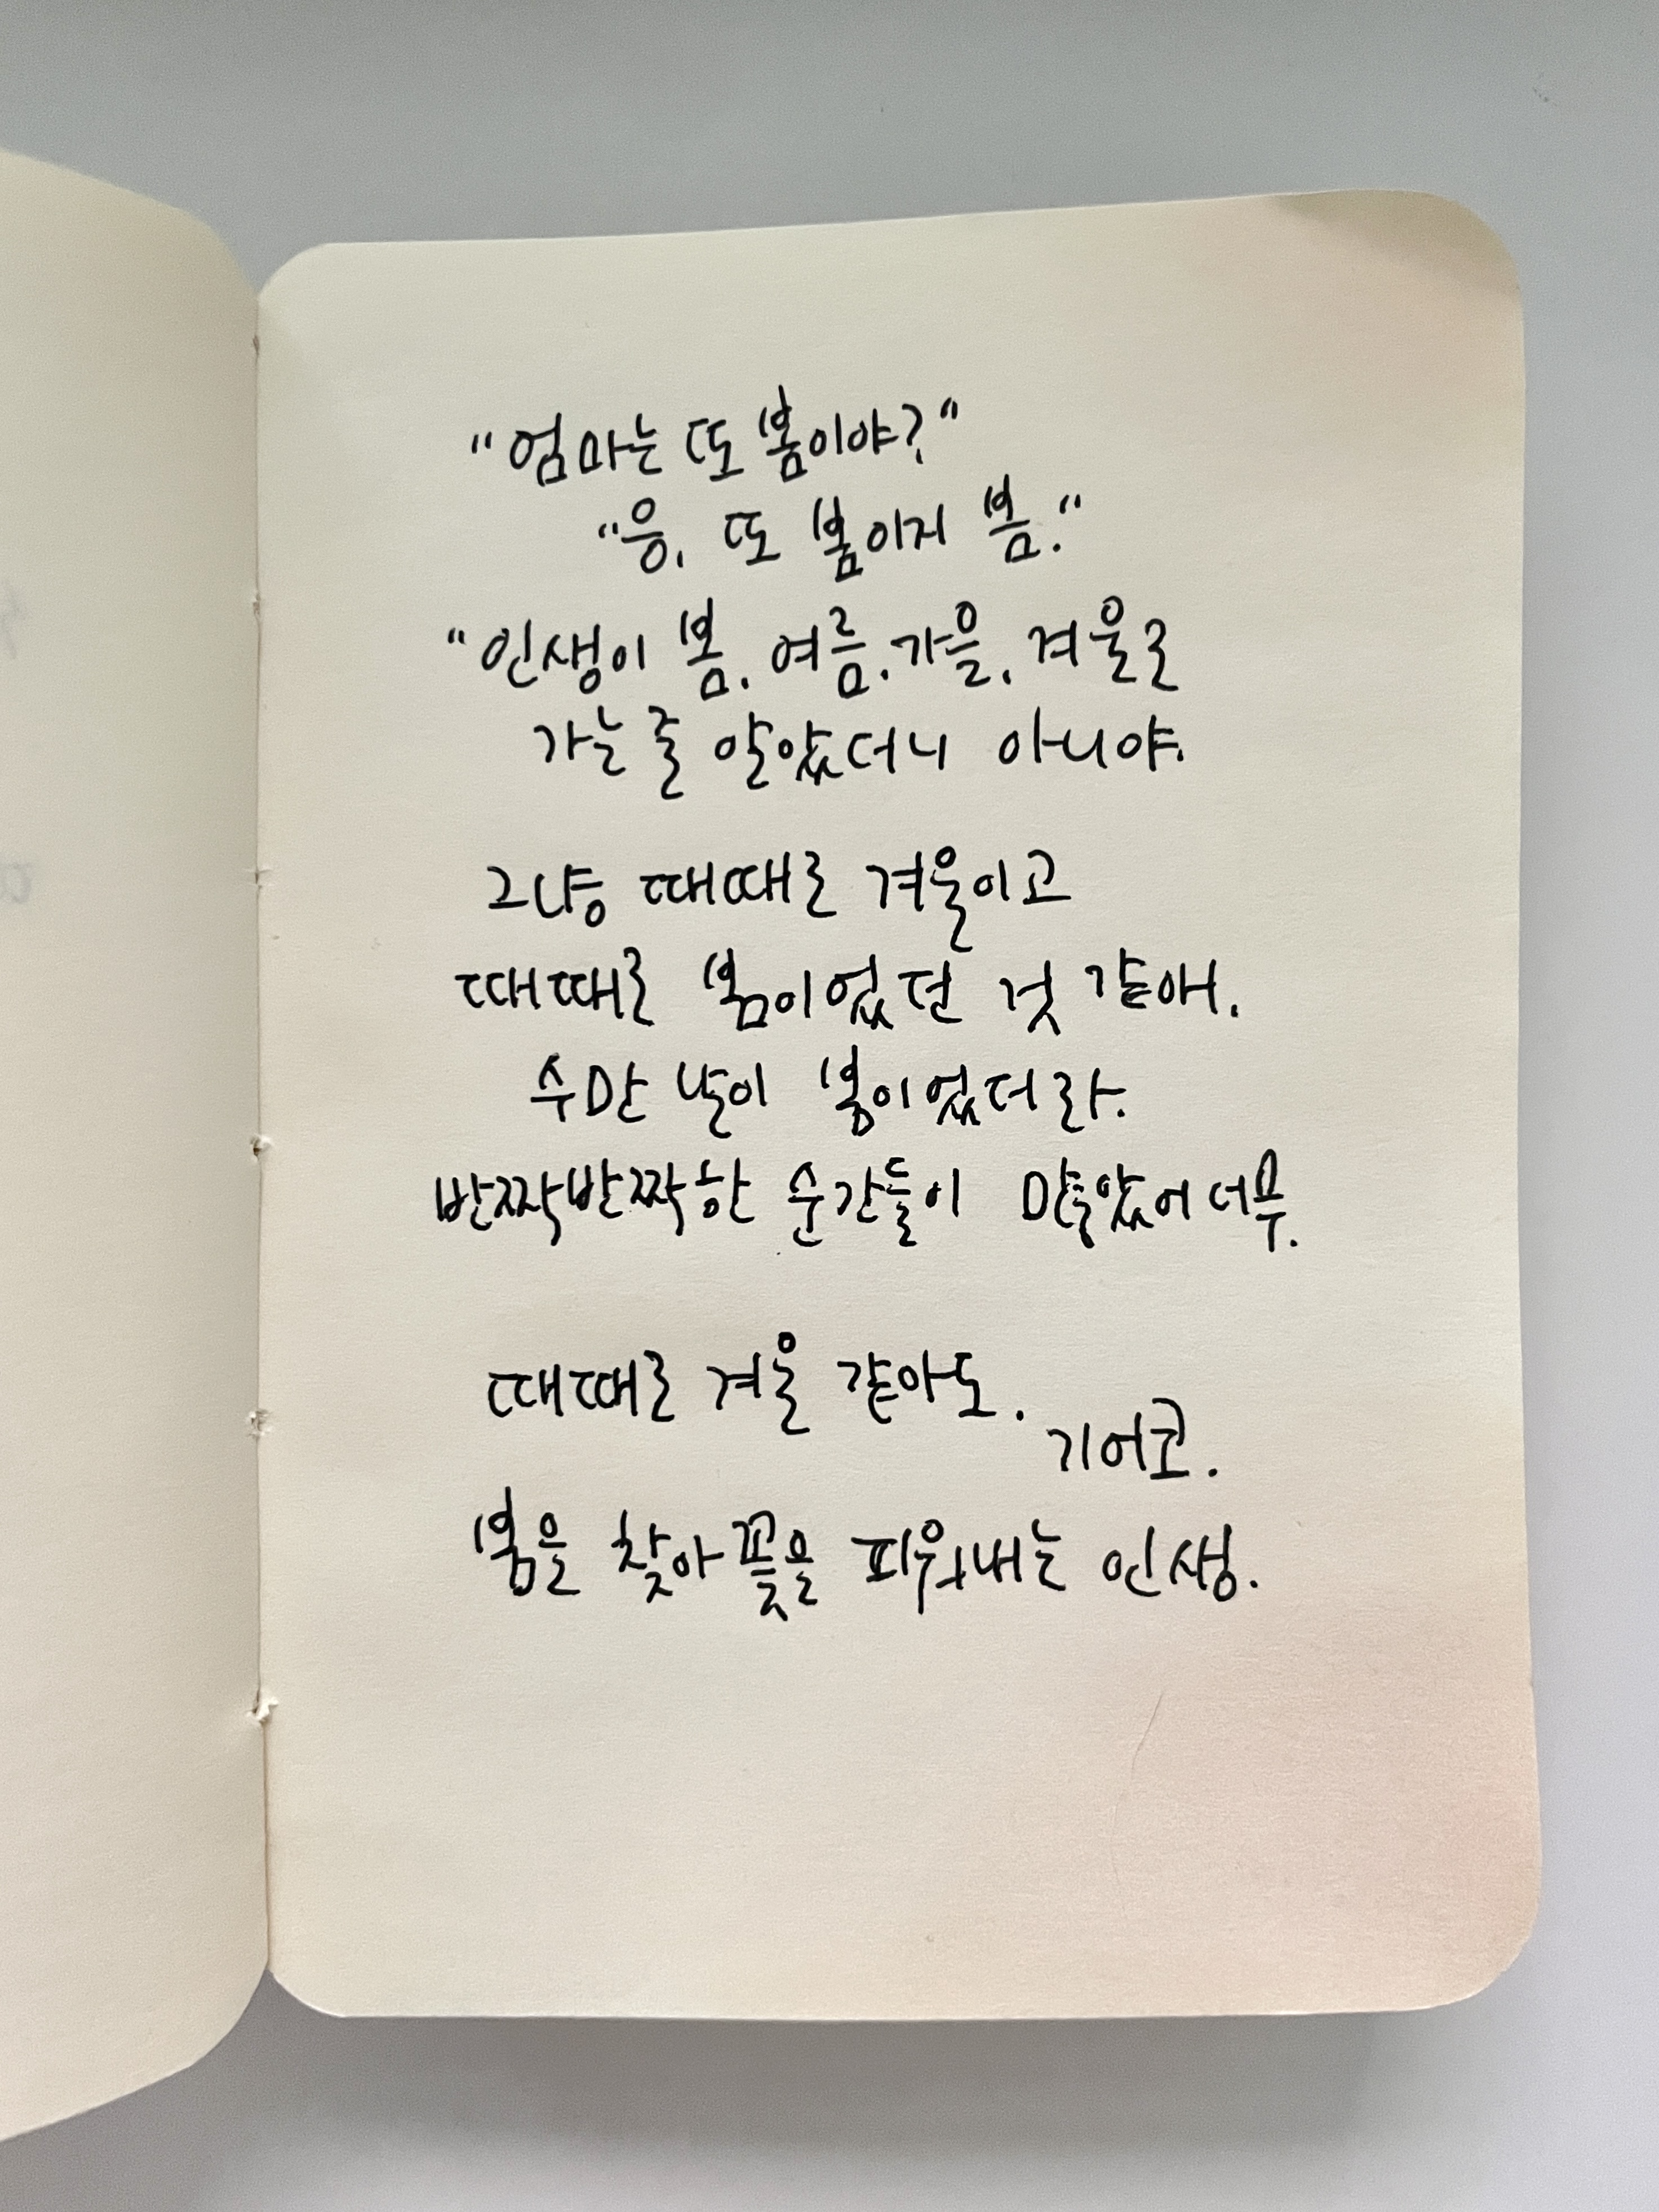 "엄마는 또 봄이야?"
"응, 또 봄이지 봄."
"인생이 봄, 여름, 가을, 겨울로
가는 줄 알았더니 아니야.
그냥 때때로 겨울이고
때때로 봄이었던 것 같애.
수만 날이 봄이었더라.
반짝반짝한 순간들이 많았어 너무.
때때로 겨울 같아도.
기어코.
봄을 찾아 꽃을 피워내는 인생.